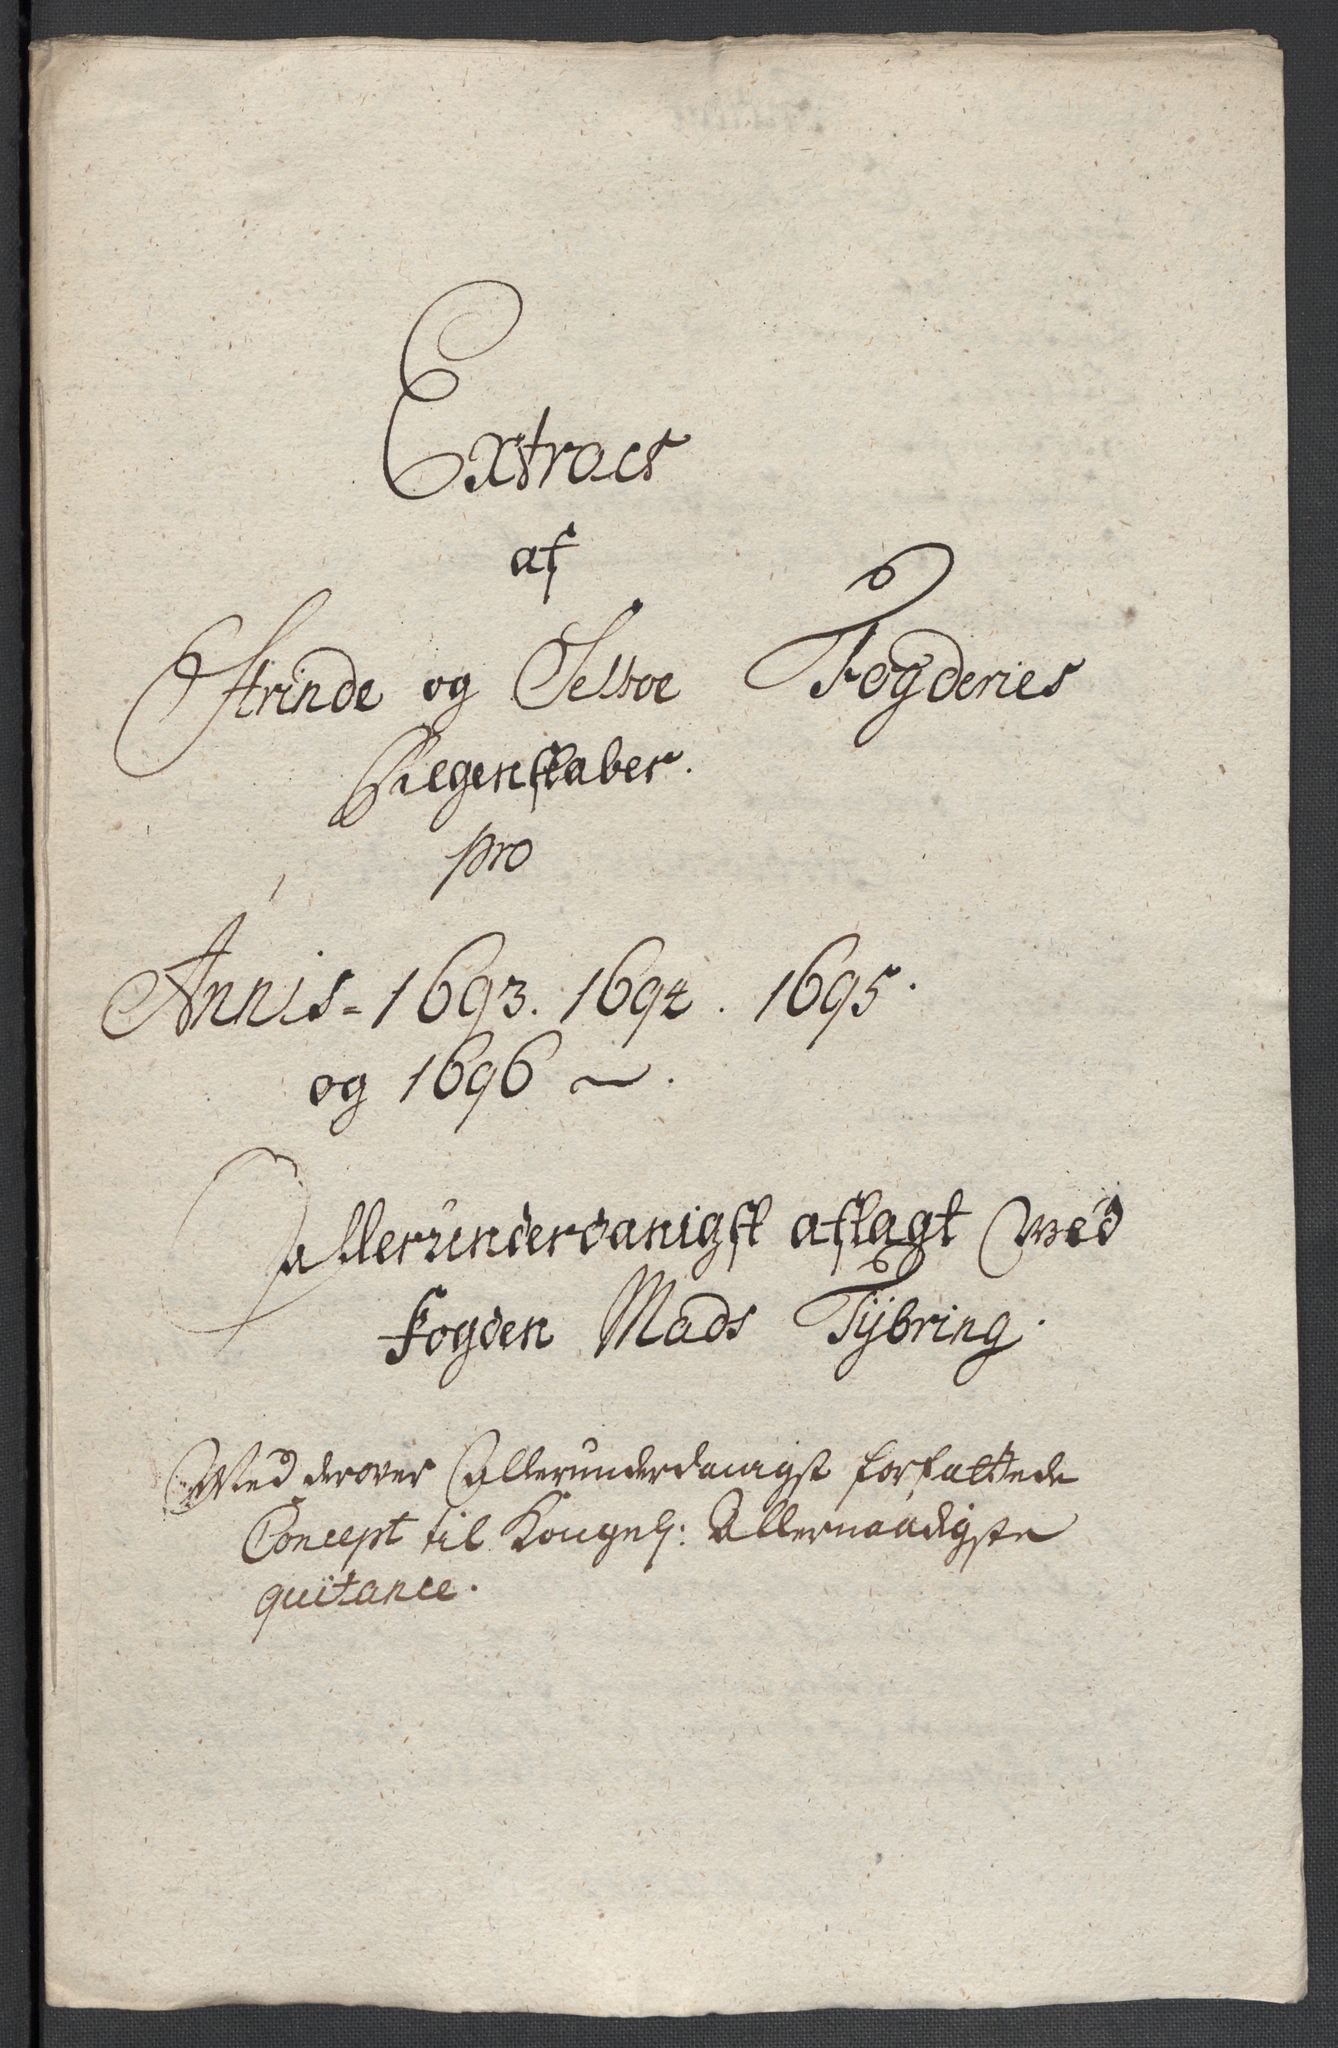 Extract
af
Strinde og Selboe Fogderies
Regenskaber.
pro
Annis - 1693. 1694. 1695.
og 1696 ~.
Allerunderdanigst aflagt Wed
fogden Mads Tÿbring.
Med derover Allerunderdanigst forfattede
Concept til Kongel: Allernaadigste
quitance.